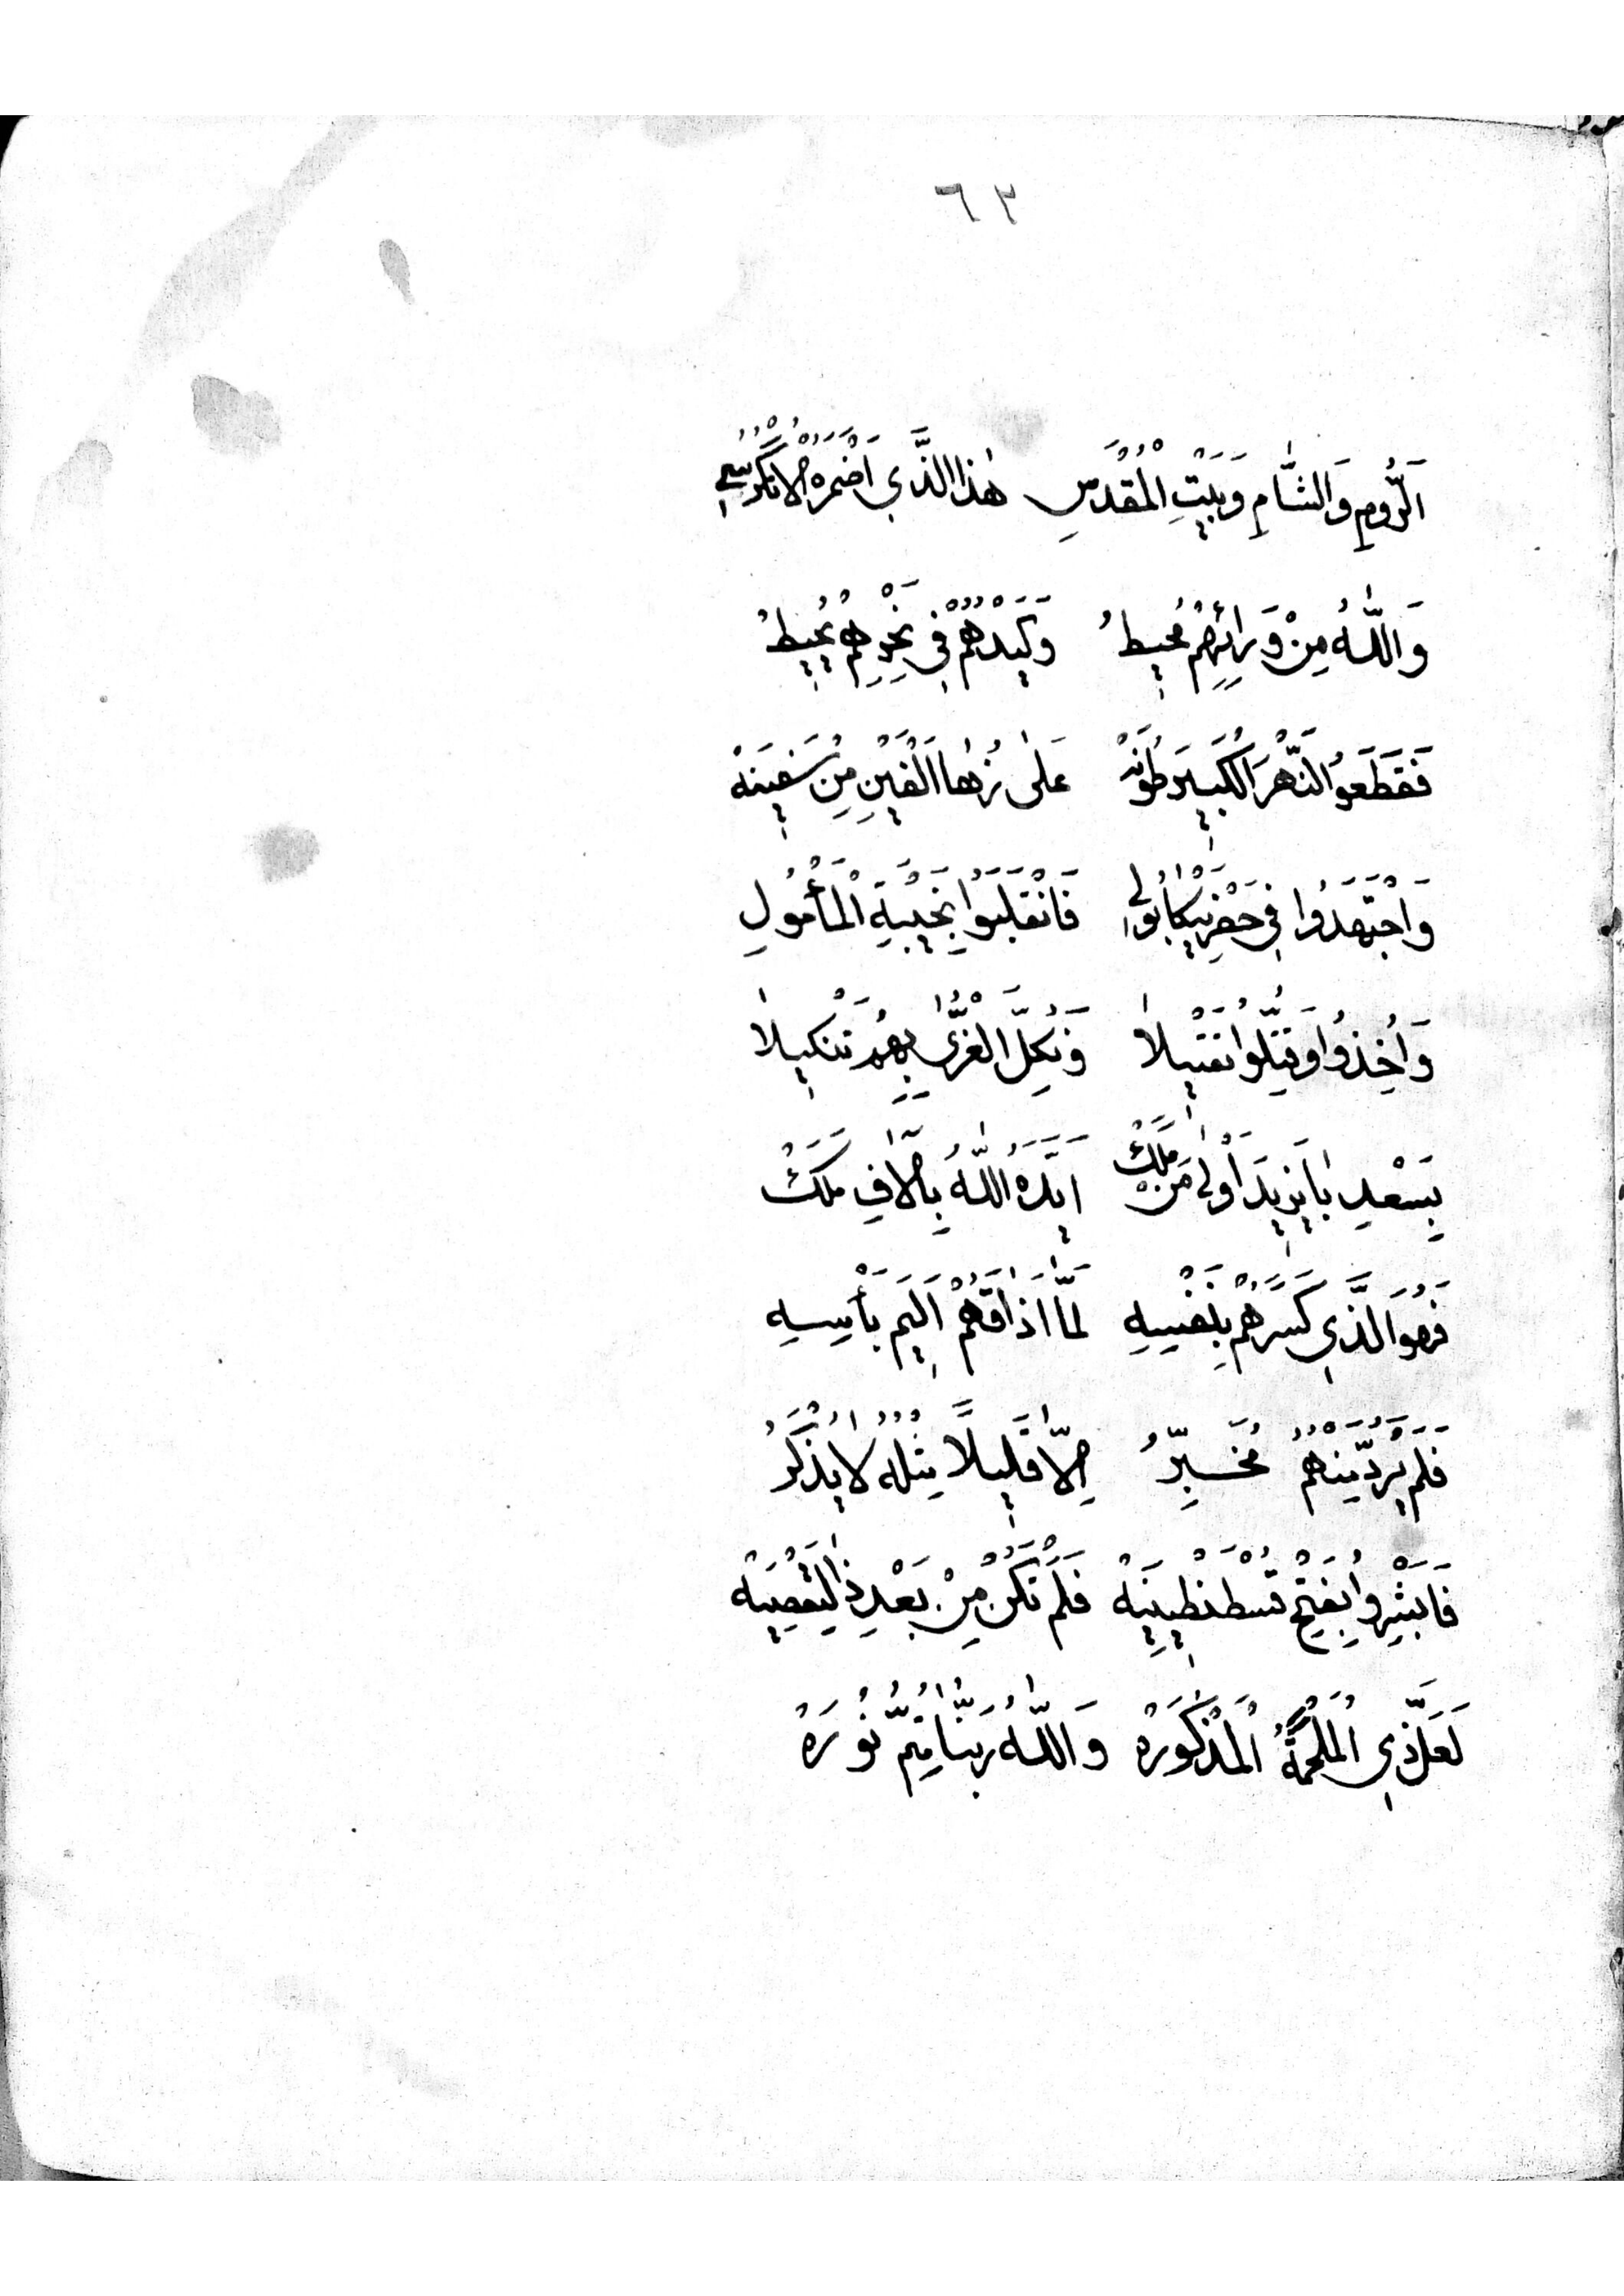 ٦٢
اَلرُّومِ وَالشَّامِ وَبَيْتِ الْمُقْدَسِ هٰذَا الَّذِي اَضْمَرَهُ الْاَنْكُرُسِي
وَاللّٰهُ مِنْ وَرَائِهِمْ مُحِيطُ وَكَيْدُهُمْ فِي نَحْرِهِمْ يُحِيطُ
فَقَطَعُوا النَّهْرَ الْكَبِيرَ طُونَهْ عَلٰى زُهَا اَلْفَيْنِ مِنْ سَفِينَهْ
وَاجْتَهَدُوا فِي حَفْرِ نِيكَابُولِي فَانْقَلَبُوا بِخَيْبَةِ الْمَأْمُولِ
وَاُخِذُوا وَقُتِّلُوا تَقْتِيلَا وَنَكَّلَ الْغُزَّى بِهِمْ تَنْكِيلَا
بِسَعْدِ بَايَزِيدَ اَوْلٰى مَنْ مَلَكْ اَيَّدَهُ اللّٰهُ بِآلَافِ مَلَكْ
فَهُوَ الَّذِي كَسَّرَهُمْ بِنَفْسِهِ لَمَّا اَذَاقَهُمْ اَلِيمَ بَأْسِهِ
فَلَمْ يُرَدَّ مِنْهُمُ مُخَبِّرُ اِلَّا قَلِيلًا مِثْلُهُ لَا يُذْكَرُ
فَابْشِرُوا بِفَتْحِ قُسْطَنْطِينِيَهْ فَلَمْ تَكُنْ مِنْ بَعْدِ ذَا لِتَعْصِيَهْ
لَعَلَّ ذِي الْمَلْحَمَةُ الْمَذْكُورَهْ وَاللّٰهُ رَبُّنَا مُتِمُّ نُورَهْ